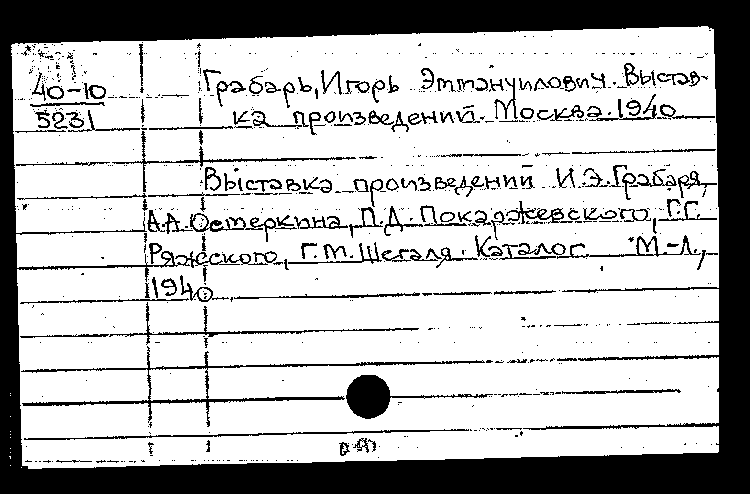 40-10
5231
Грабарь, Игорь Эммануилович. Выстав-
ка произведений. Москва. 1940
Выставка произведений И.Э.Грабаря,
А.А.Остеркина, П.Д.Покаржевского, Г.Г.
Ряжского, Г.М.Шегаля. Каталог М.-Л.,
1940